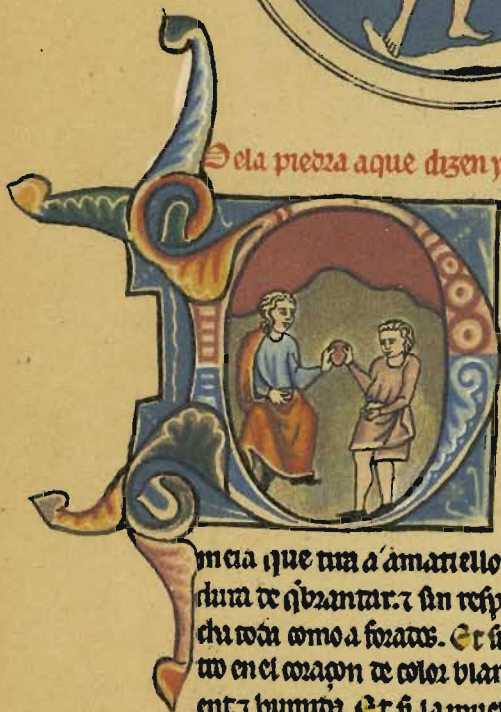 Dela piedra aque dizen
meia que tira a amariello
dura de q̃brantar. ⁊ sin resp
chi toda como a forados. Et si
tro en el coraçon de color blan
ent ⁊ humida. Et si la